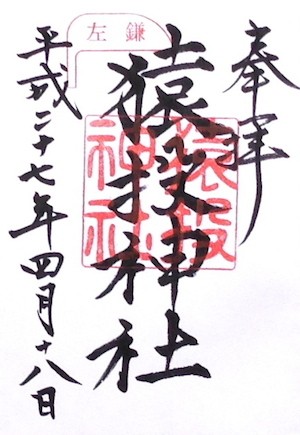 奉拝
猿投神社
平成二十七年四月十八日
左鎌
猿投神社